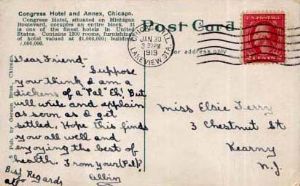 Congress Hotel and Annex, Chicago.
Congress Hotel, situated on Michigan
Boulevard, occupies an entire block. It
is one of the finest hotels in the United
States. Contains 1200 rooms, furnishings
Post Card
JAN 30
3 PM
1913
LAKEVIEW STA.
address only
Dear Friend:- Suppose
you think I am a
dickens of a "Pal" Eh! But
will write and explain
as soon as I get
settled. Hope this finds
you all well and
enjoying the best of
health. From your "Pal"
Albin
Best Regards
to
Miss Elsie Terry
3 Chestnut St
Kearny
N.J.